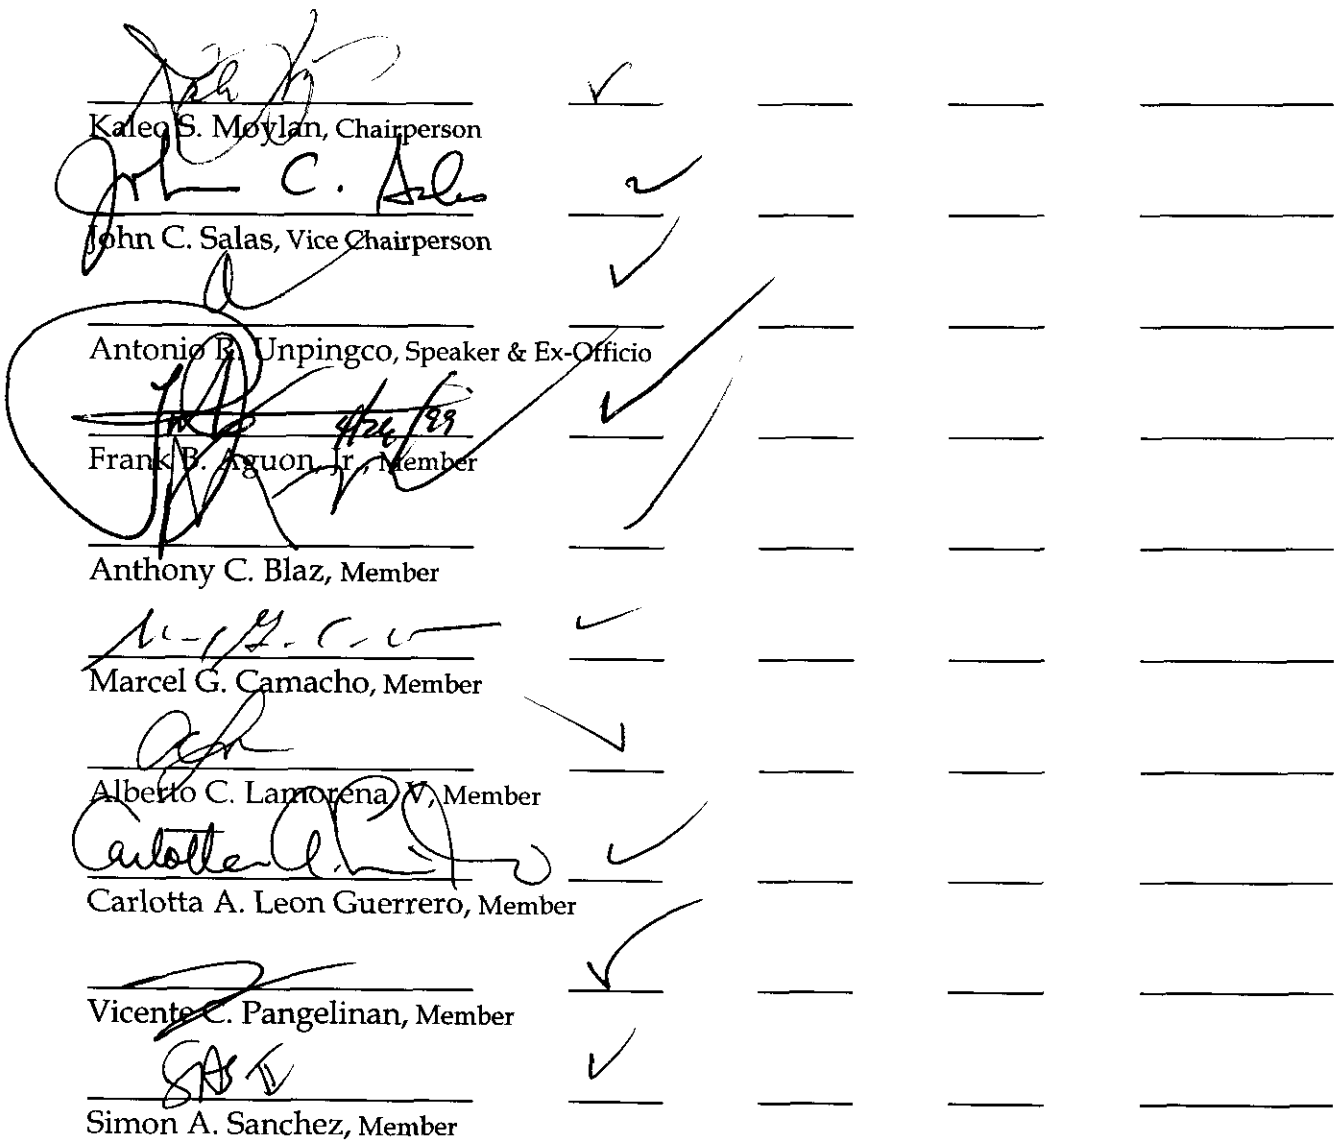 Kaleo S. Moylan, Chairperson
John C. Salas
John C. Salas, Vice Chairperson
Antonio R. Unpingco, Speaker & Ex-Officio
4/26/99
Frank B. Aguon, Jr., Member
Anthony C. Blaz, Member
Marcel G. Camacho, Member
Alberto C. Lamorena V, Member
Carlotta A.
Carlotta A. Leon Guerrero, Member
Vicente C. Pangelinan, Member
SAS II
Simon A. Sanchez, Member